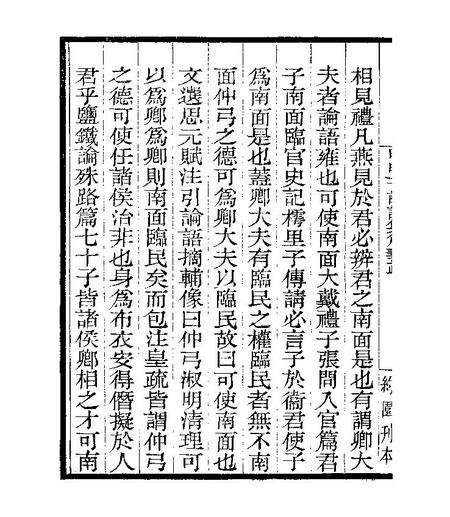 相見禮凡燕見於君必辨君之南面是也有謂卿大
夫者論語雍也可使南面大戴禮子張問入官篇君
子南面臨官史記樗里子傳請必言子於衞君使子
爲南面是也蓋卿大夫有臨民之權臨民者無不南
面仲弓之德可爲卿大夫以臨民故曰可使南面也
文選思元賦注引論語摘輔像曰仲弓淑明清理可
以爲卿爲卿則南面臨民矣而包注皇疏皆謂仲弓
之德可使任諸侯治非也身爲布衣安得僭擬於人
君乎鹽鐵論殊路篇七十子皆諸侯卿相之才可南